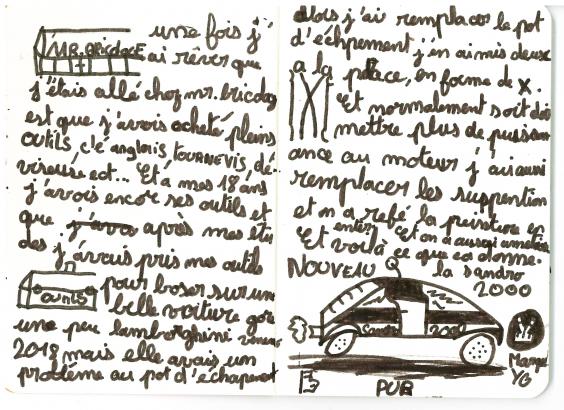 une fois j'
MR. BRICOLAGE ai rêver que
j'étais allé chez mr. bricolag
est que j'avois acheté pleins
outils, clé anglais, TOURNEVIS, dé-
viseuse ect... Et a mes 18 ans
j'avois encor ses outils et
que j'ava après mes étu
des j'avais pris mes outils
OUTILS pour boser sur une
belle voiture gore
une peu lamborghini
2018 mais elle avais un
problème au pot d'échapment
Alors j'ai remplacer le pot
d'échpement j'en ai mis deux
a la place, en forme de x.
Et normalement soit dis
mettre plus de puiss
ance au moteur j'ai aussi
remplacer les suspention
et on a refé la peinture
entier et on a aussi
Et voilà ce que ça donne.
NOUVEAU la sandro
2000
2000
Marque
YG
PUB